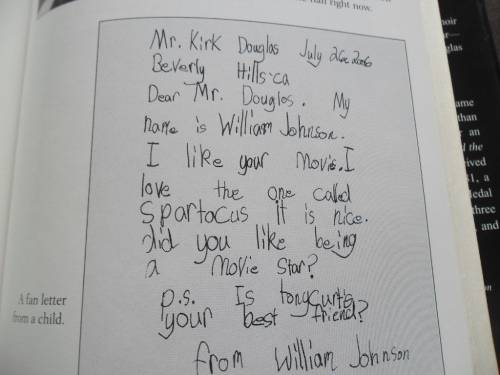 the hall right now.
Mr. Kirk Douglas July 26 2006
Beverly Hills-ca
Dear Mr. Douglos. My
name is William Johnson.
I like your movie. I
love the one called
Spartacus it is nice.
did you like being
a movie star?
p.s. Is tony Curtis
your best friend?
from William Johnson
A fan letter
from a child.
noir
ar—
glas
ame
than
r an
d the
rived
1, a
ledal
three
, and
on